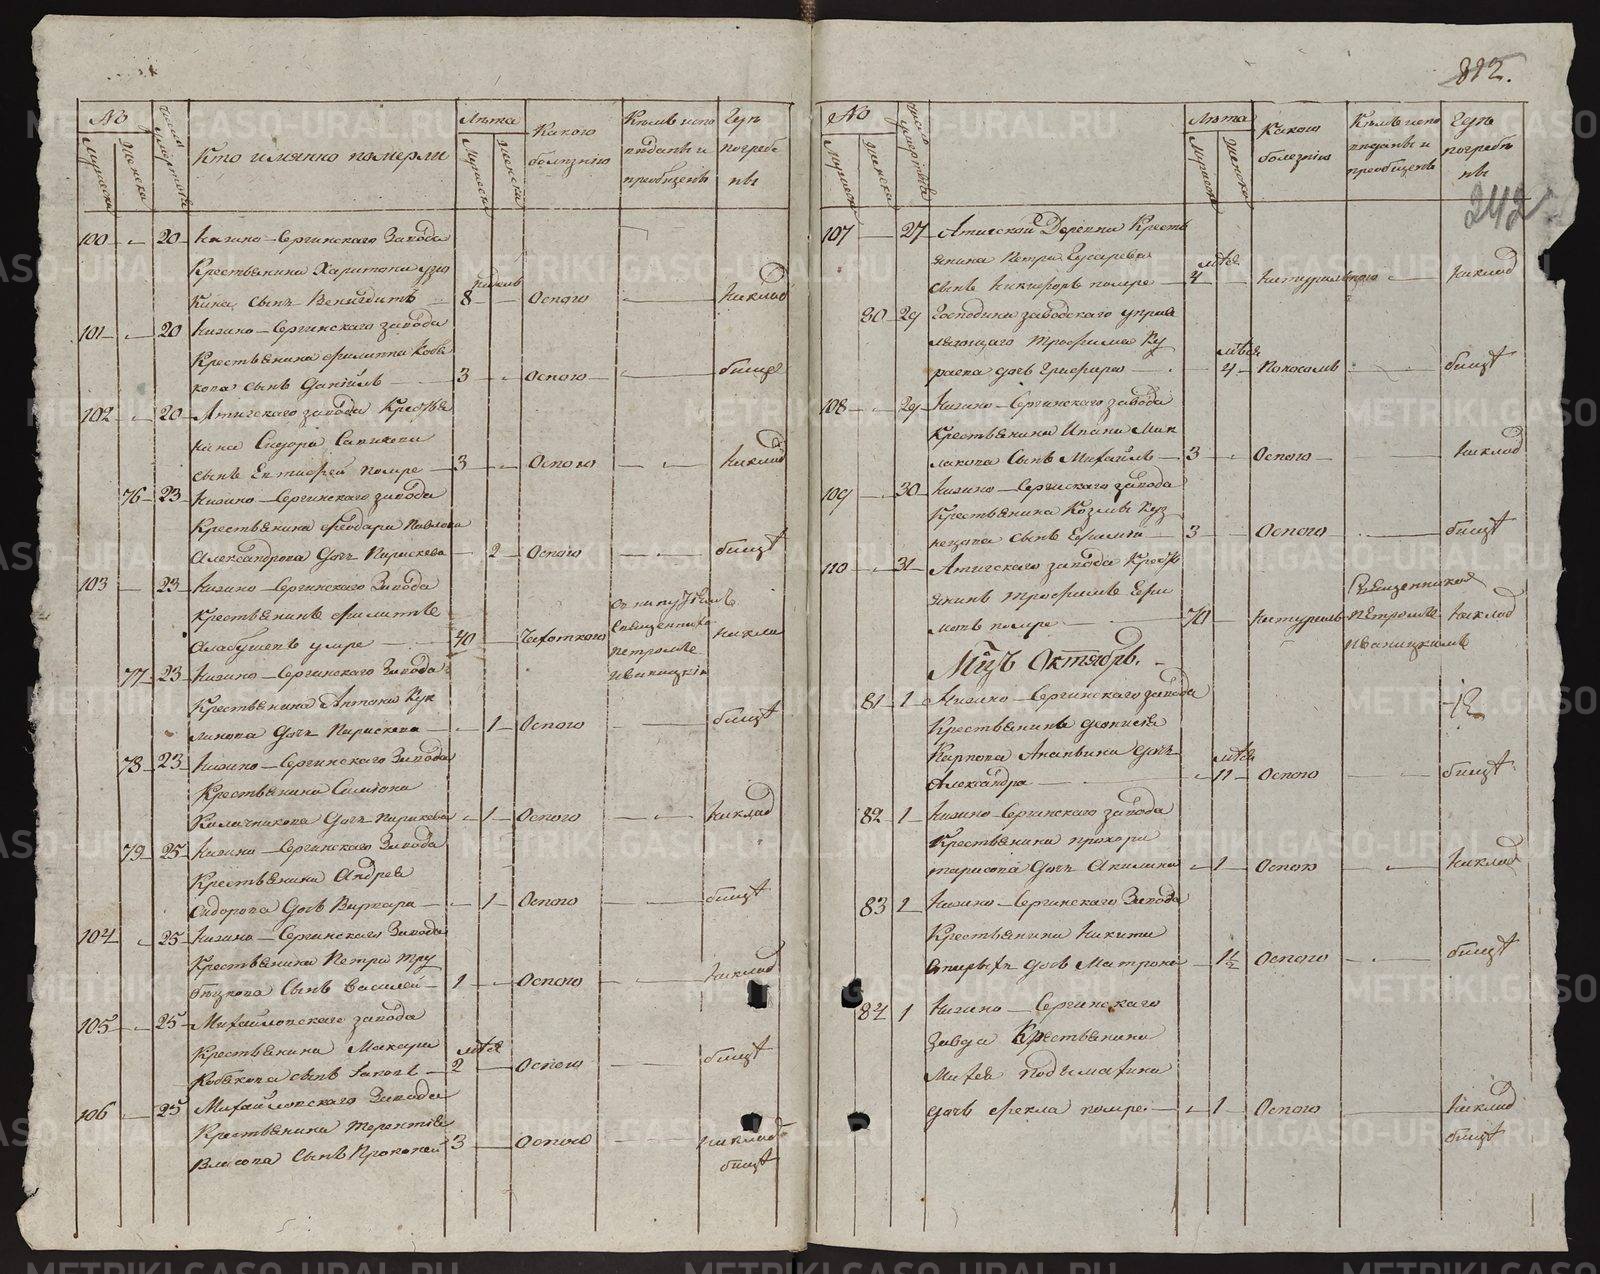 №
Мужеска
Женска
Число умертвия
Кто имянно померли
Лѣта
Мужеска
Женска
Какою болезнію
Кѣмъ испо
виданы и
пріобщены
Гдѣ
погребе
ны
100 20 Нижно-Сергинскаго завода
Крестьянина Харитона
сынъ Венигдитъ 8 недель Оспою На клад
101 20 Нижно-Сергинскаго завода
Крестьянина Филиппа Кобя
кова сынъ Даніилъ 3 Оспою бищѣ
102 20 Атигскаго завода Кресть
нина Сидора Сапикова
сынъ Евтифей помре 3 Оспою На клад
76 23 Нижно-Сергинскаго завода
Крестьянина Феодора Павлова
Александрова дочь Параскева 2 Оспою бищѣ
103 23 Нижно-Сергинскаго завода
Крестьянинъ Филиппъ
умре 40 Чахоткою
Священник
Петромъ
Иваницкі
На кла
77 23 Нижно-Сергинскаго завода
Крестьянина Антона Кук
линова дочь Параскева 1 Оспою бищѣ
78 23 Нижно-Сергинскаго завода
Крестьянина Симеона
Калачникова дочь Параскева 1 Оспою На клад
79 25 Нижно-Сергинскаго завода
Крестьянина Андрея
Сидорова дочь Варвара 1 Оспою бищѣ
104 25 Нижно-Сергинскаго завода
Крестьянина Петра Тру
бицкова сынъ Василей 1 Оспою На клад
105 25 Михайловскаго завода
Крестьянина Максима
Кобякова сынъ Іаковъ 2 мѣся Оспою бищѣ
106 25 Михайловскаго завода
Крестьянина Терентія
Власова сынъ Прокопей 3 Оспою На клад
бищѣ
812.
242
№
Мужеска
Женска
Число умертвія
Лѣта
Мужеска
Женска
Какою
болезнію
Кѣмъ испо
виданы и
пріобщены
Гдѣ
погребе
ны
107 27 Атигской Деревни Кресть
янина Петра Гусарева
сынъ Никифоръ помре 4 мѣся Натуральною На клад
80 29 Господина заводскаго управ
ляющаго Трофима Ку
раева дочь Глафира 4 мѣся Поносомъ бищѣ
108 29 Нижно-Сергинскаго завода
Крестьянина Ивана Мин
лакова сынъ Михайлъ 3 Оспою На клад
109 30 Нижно-Сергискаго завода
Крестьянина Козмы Куз
нецова сынъ 3 Оспою бищѣ
110 31 Атигскаго завода Кресть
янинъ Трофимъ Ефи
мовъ помре 70 Натураль
Священником
Петромъ
Иваницкимъ
На клад
Мцъ Октябрь.
12
81 1 Нижно-Сергинскаго завода
Крестьянинъ Діонисія
Карпова Ананьина дочь
Александра 11 мѣся Оспою бищѣ
82 1 Нижно-Сергинскаго завода
Крестьянина Прохора
Тарасова дочь Акилина 1 Оспою На клад
83 1 Нижно-Сергинскаго завода
Крестьянина Никиты
дочь Матрона 1½ Оспою бищѣ
84 1 Нижно-Сергинскаго
завода Крестьянина
Михея Подъматина
дочь Фекла помре 1 Оспою На клад
бищѣ
METRIKI.GASO-URAL.RU